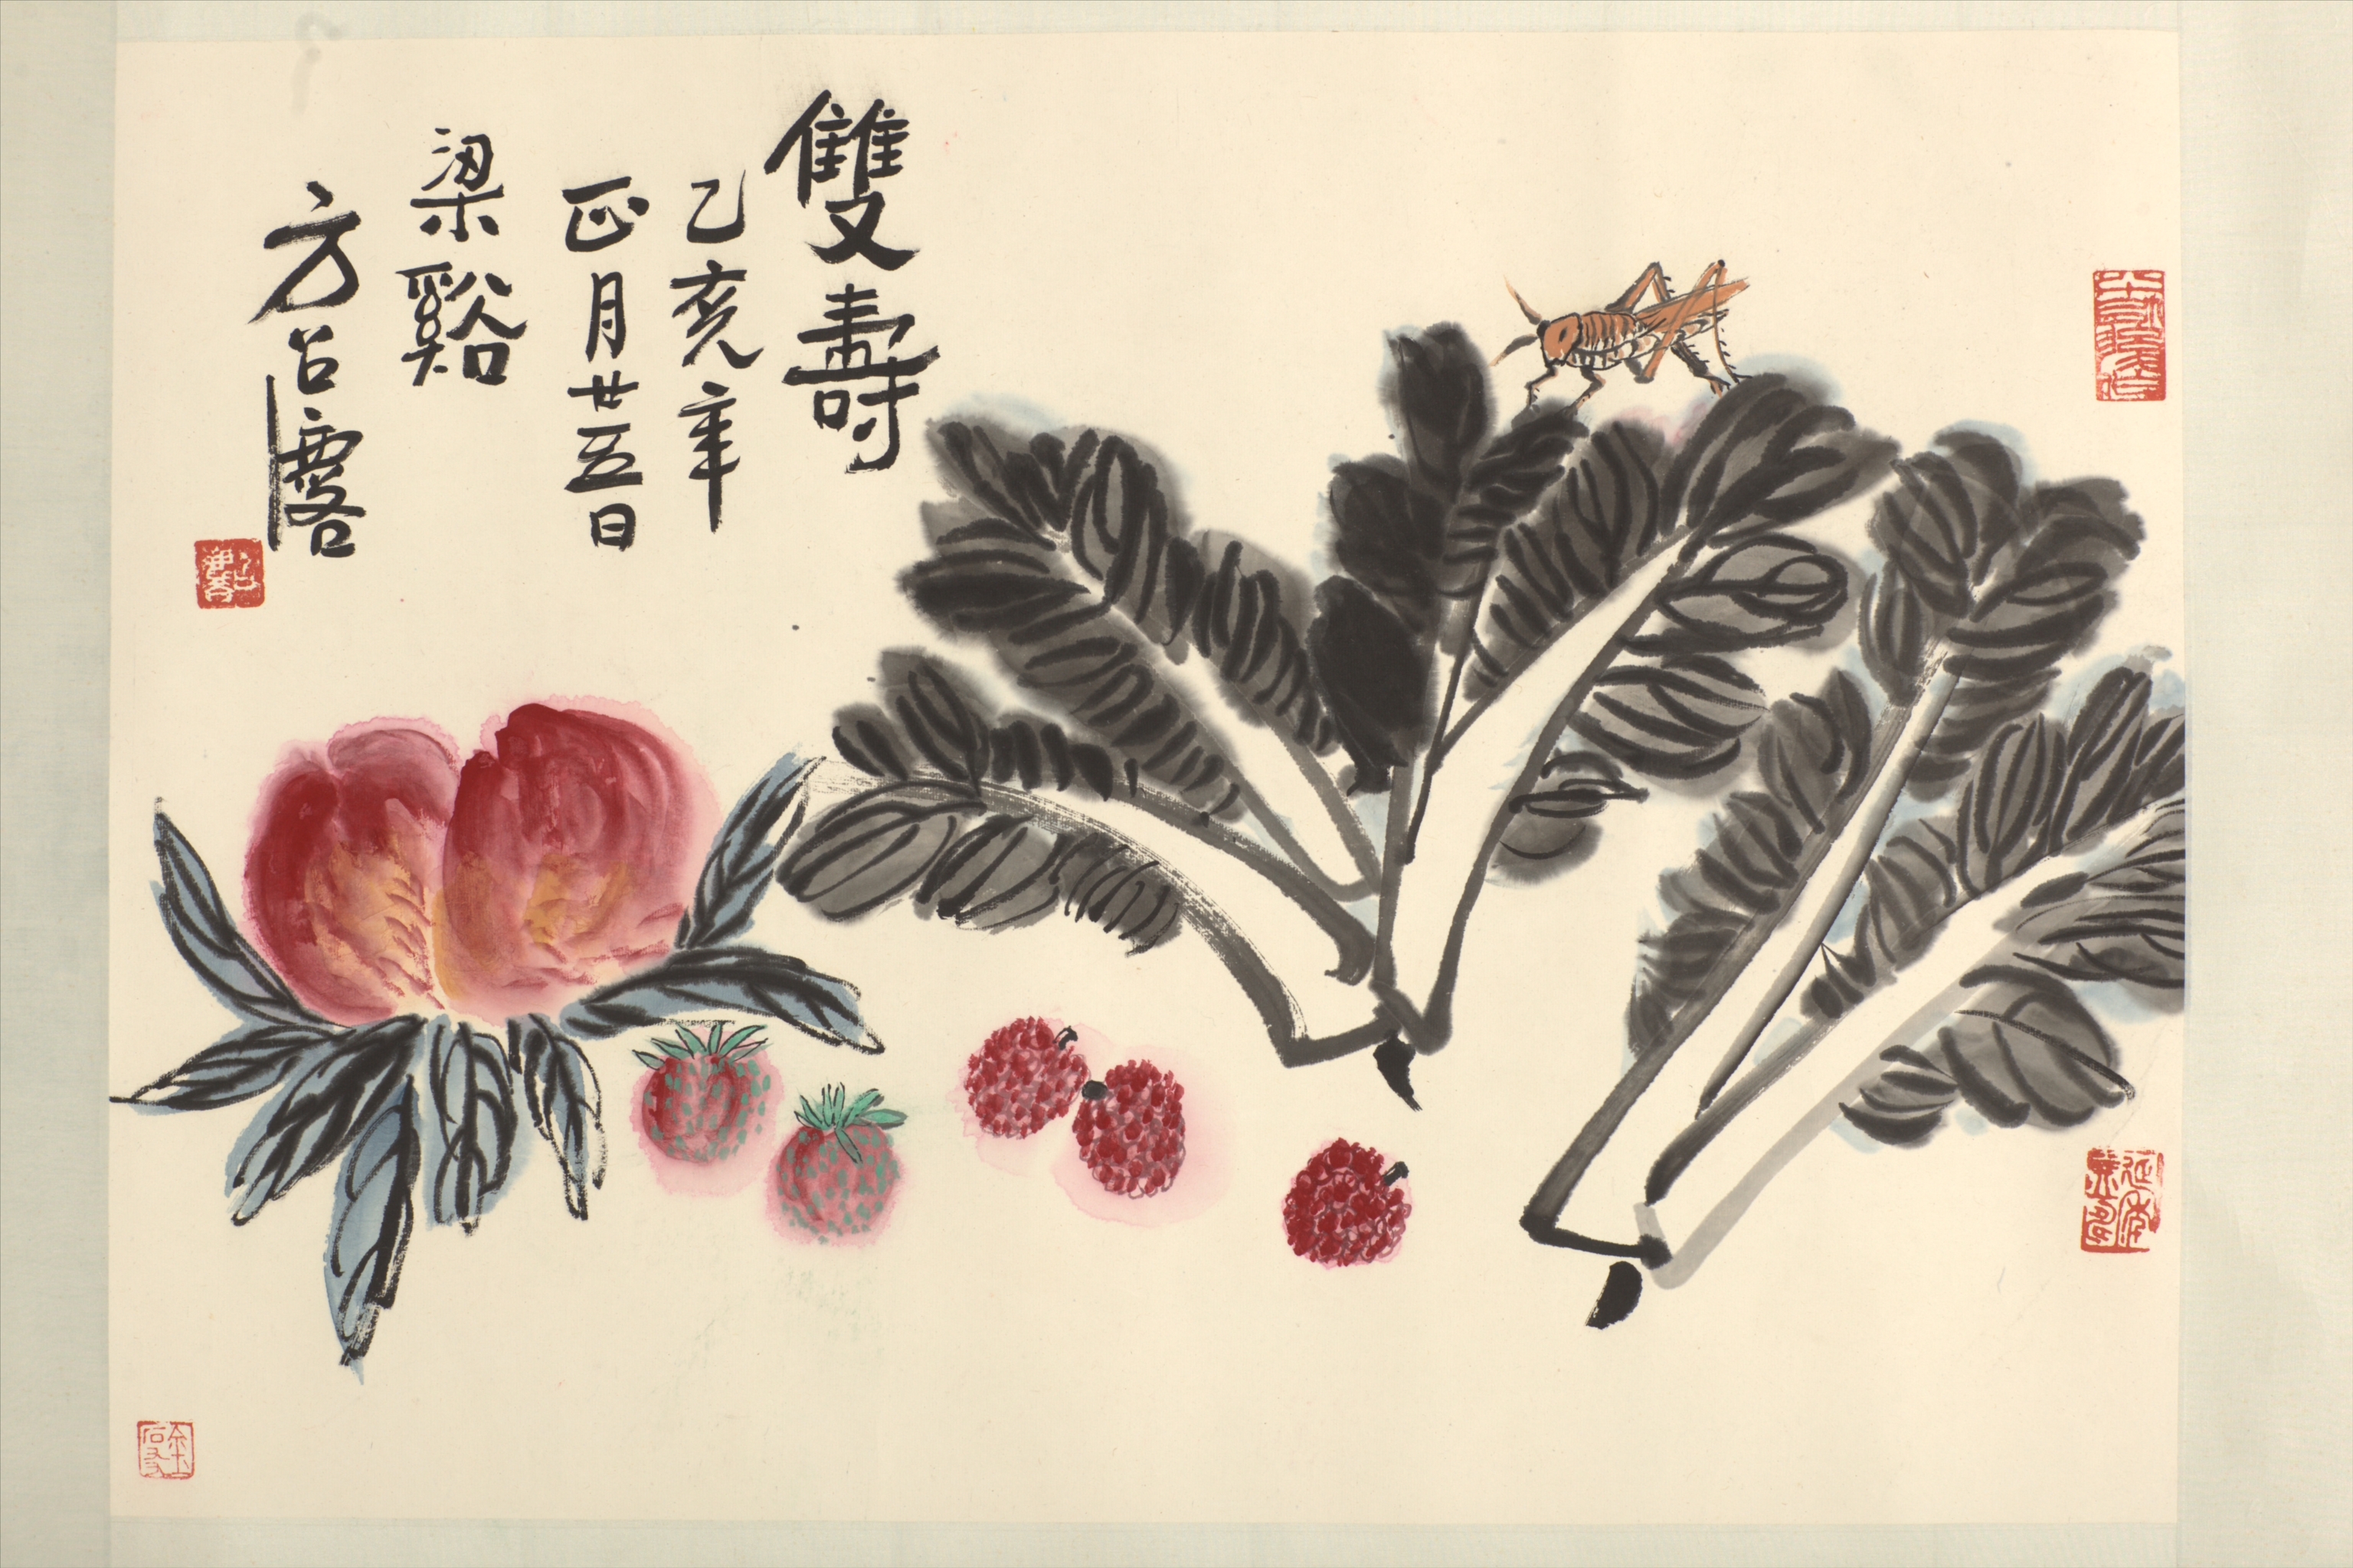 雙壽
乙亥年
正月廿五日
梁谿
方召麐